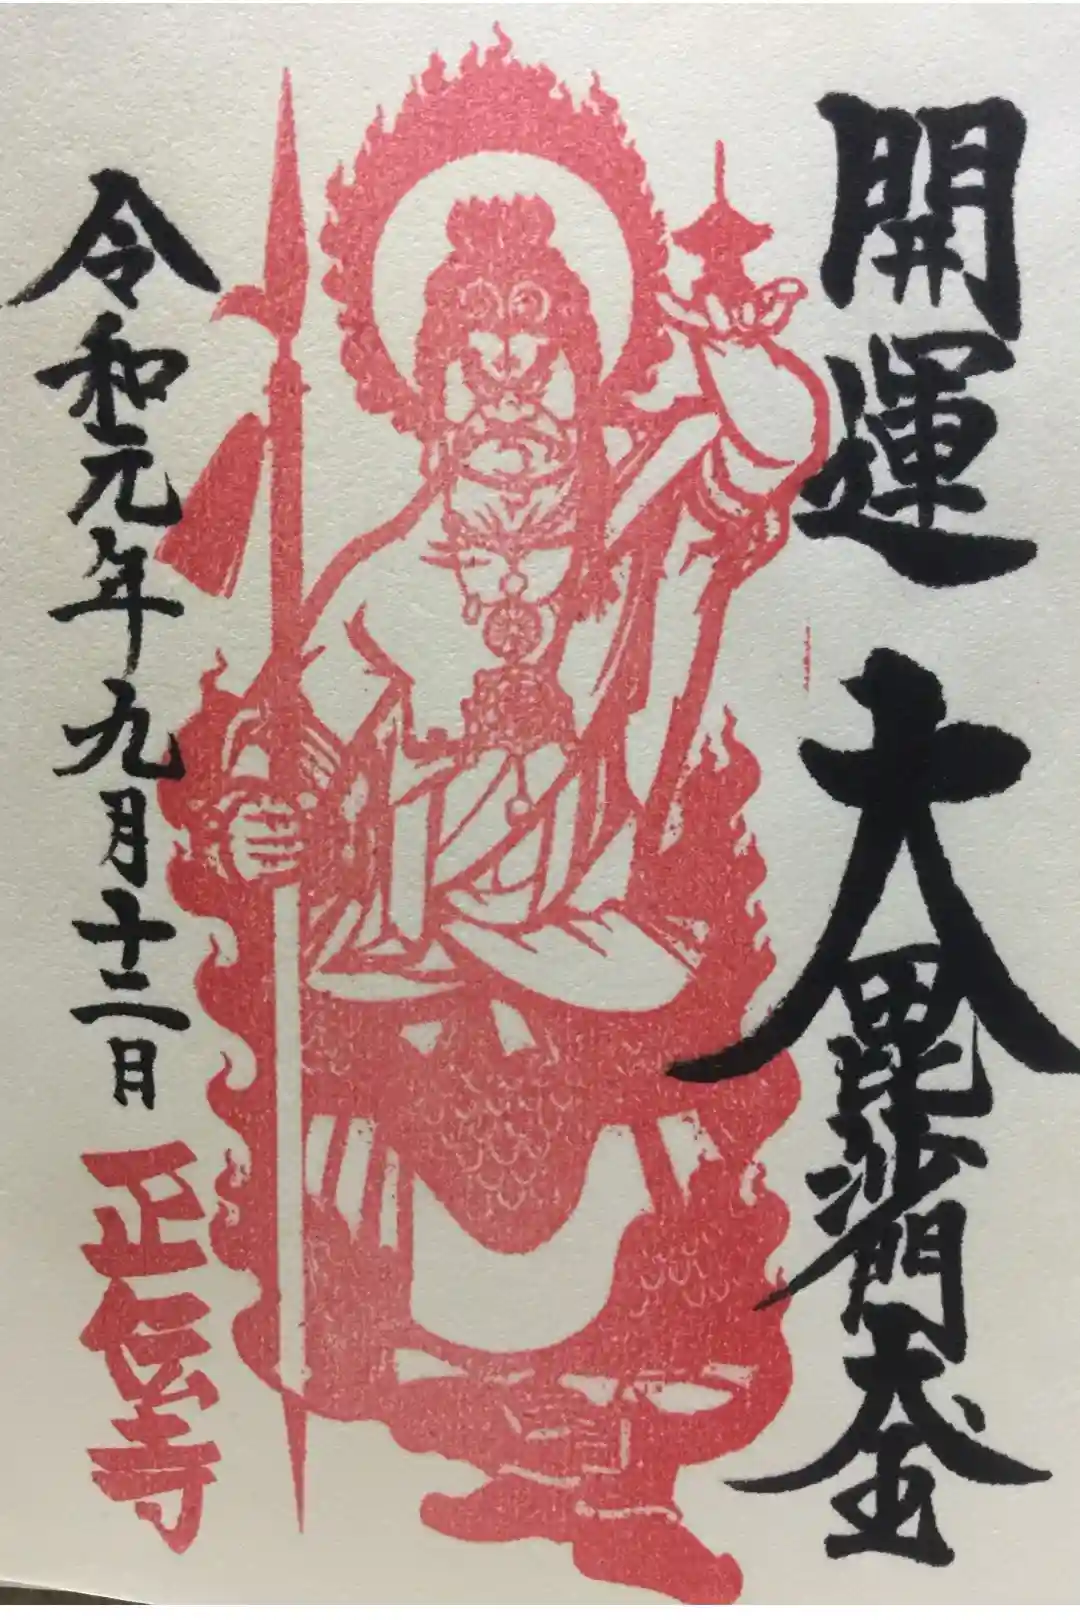 開運 大毘沙門天王
令和元年九月十二日
正伝寺